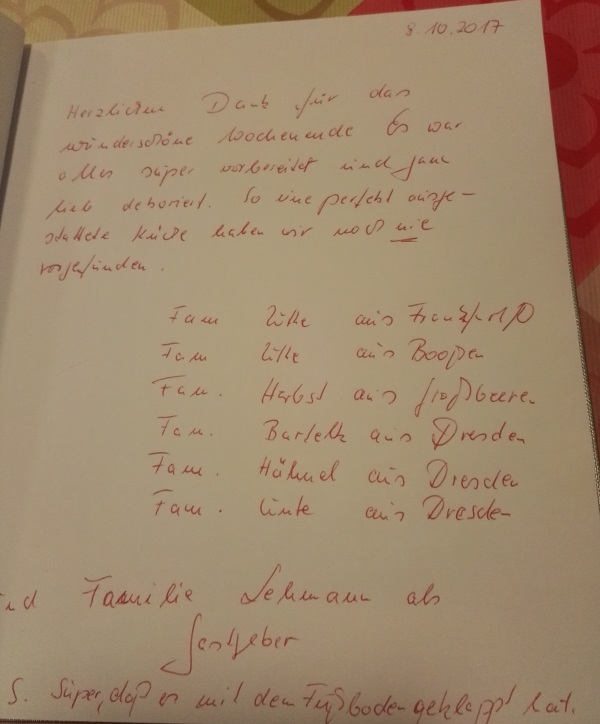 8.10.2017
Herzlichen Dank für das
wunderschöne Wochenende Es war
alles super vorbereitet und ganz
lieb dekoriert. So eine perfekt ausge-
stattete Küche haben wir noch nie
vorgefunden.
Fam aus Frankf
Fam aus Booßen
Fam. Herbst aus Großbeeren
Fam. Bartelt aus Dresden
Fam. Hähnel aus Dresden
Fam. aus Dresden
nd Familie Lehmann als
Gastgeber
S. Super, daß es mit dem Fußboden geklappt hat.